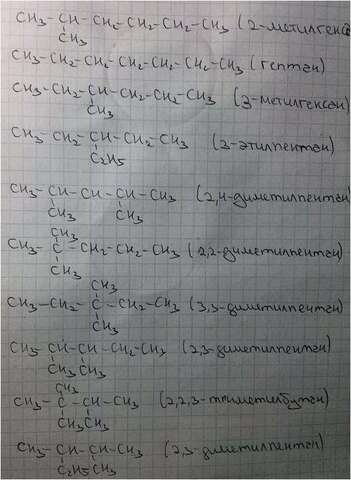 CH3-CH-CH2-CH2-CH2-CH3 (2-метилгексан
CH3
CH3-CH2-CH2-CH2-CH2-CH2-CH3 (гептан)
CH3-CH2-CH-CH2-CH2-CH3 (3-метилгексан)
CH3
CH3-CH2-CH-CH2-CH3 (3-этилпентан)
C2H5
CH3-CH-CH-CH-CH3 (2,4-диметилпентан)
CH3 CH3
CH3
CH3-C-CH2-CH2-CH3 (2,2-диметилпентан)
CH3
CH3
CH3-CH2-C-CH2-CH3 (3,3-диметилпентан)
CH3
CH3-CH-CH-CH2-CH3 (2,3-диметилпентан)
CH3 CH3
CH3
CH3-C-CH-CH3 (2,2,3-триметилбутан)
CH3 CH3
CH3-CH-CH-CH3 (2,3-диметилпентан)
C2H5 CH3